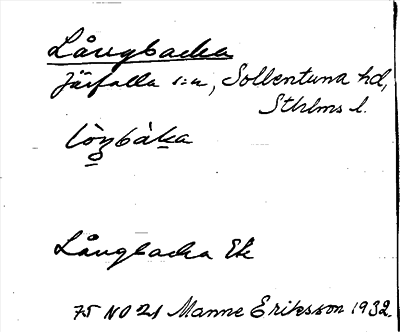 Långbacka
Järfalla s:n, Sollentuna hd,
Sthlms l.
lòŋbàka
Långbacka Ek
75 NO 21 Manne Eriksson 1932